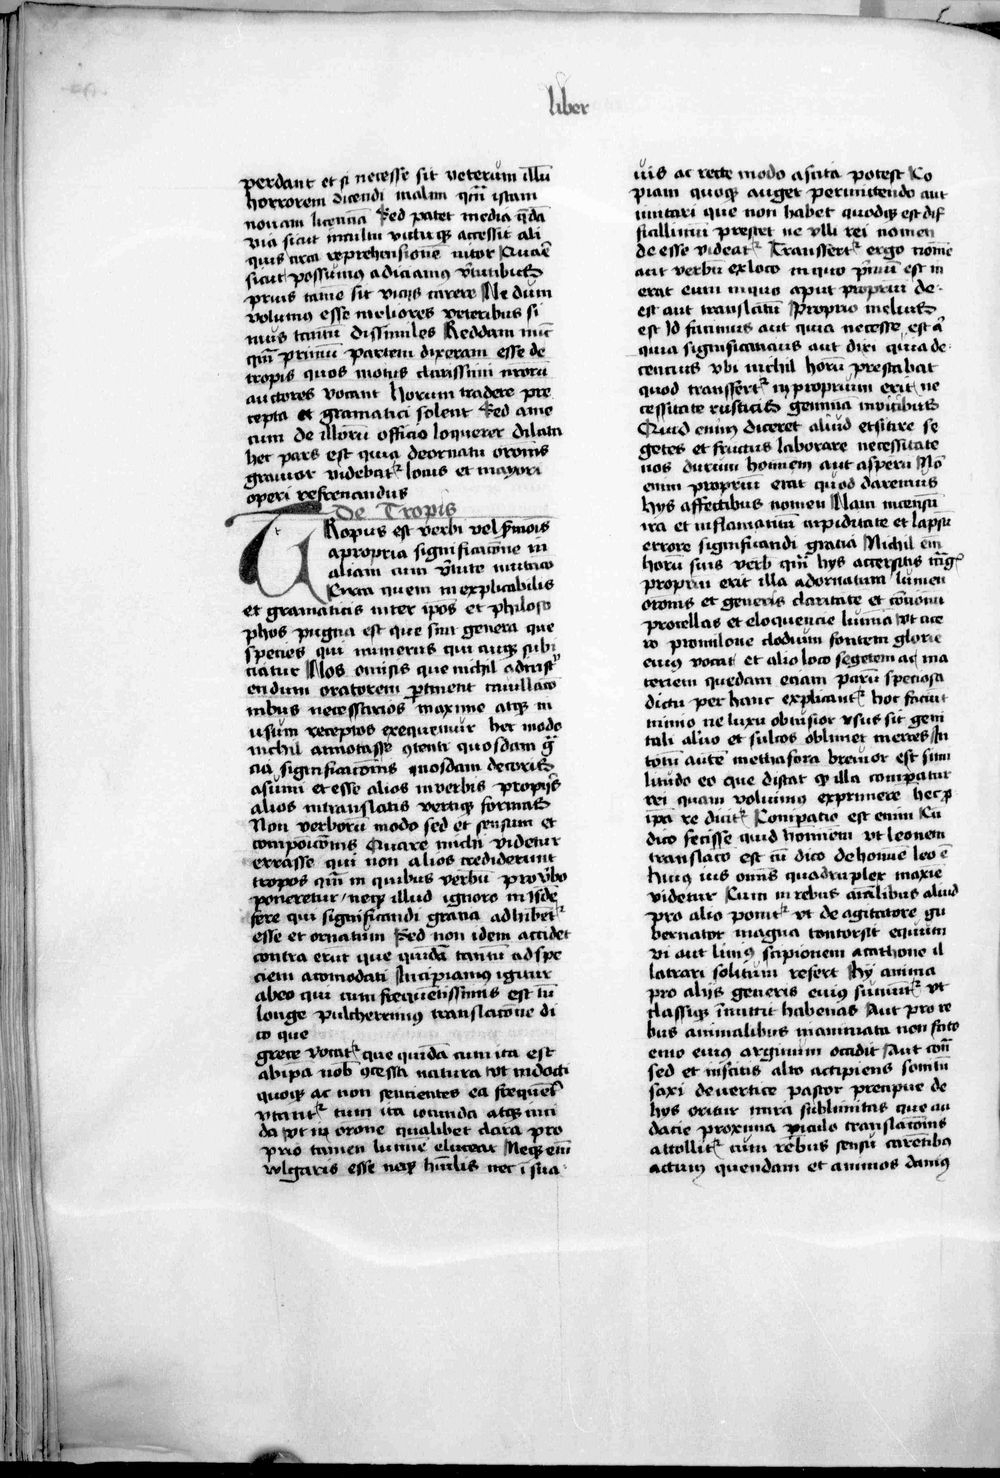 liber
perdant et si necesse sit veterum illũ
horrorem dicendi malim qm̃ istam
nouam licenciã Sed patet media q̃dã
via sicut in cultu victuq; accessit ali
quis citra reprehensionẽ nitor Quarẽ
sicut possumus adiciamus v̾tutibus
prius tamẽ sit vicijs carere Ne dum
volumus esse meliores veteribus si
mus tantũ dissimiles Reddam nũc
qm̃ primũ partem dixeram esse de
tropis quos motus clarissimi nrorũ
auctores vocant Horum tradere pre
cepta et gramatici solent Sed a me
cum de illorũ officio loquerer dilata
hec pars est quia de ornatu oronis
grauior videbat᷑ locus et maiori
operi reseruandus
De Tropis
TRopus est verbi vel s̾mois
a propria significac̃one in
aliam cum v̾tute mutaco
Circa quem inexplicabilis
et gramaticis inter ip̃os et philoso
phos pugna est que sint genera que
species qui numerus qui cuiq; subi
ciatur Nos omissis que nichil ad instr̾
endum oratorem p̱tinent cauillac̃o
nibus necessarios maxime atq; in
usum receptos exequemur hec modo
nichil annotasse 9tenti quosdam gr̃
cia significac̃onis quosdam decoris
asumi et esse alios in verbis proprijs
alios in translatis vertiq; formas
Non verborũ modo sed et sensum et
compoic̃onis Quare michi videntur
errasse qui non alios crediderunt
tropos qm̃ in quibus verbũ pro v̾bo
poneretur neq; illud ignoro in isdẽ
fere qui significandi gracia adhibet᷑
esse et ornatum Sed non idem accidet
contra erũt que quidã tantũ ad spe
ciem acomodati Incipiamus igitur
ab eo qui cum frequẽtissimus est tũ
longe pulcherrimus translac̃one di
co que
grece vocat᷑ que quidẽ cum ita est
ab ipã nob̾ 9cessa natura vt indocti
quoq; ac non sentientes ea frequent̾
vtant᷑ tum ita iocunda atq; niti
da vt in orone qualibet clara pro
prio tamen lumine eluceat Neq; eni
vulgaris esse neq; humilis nec ĩsua
uis ac recte modo ascita potest Co
piam quoq; auget permutendo aut
mutari que non habet quodq; est dif
ficillimũ prestet ne vlli rei nomen
de esse videat᷑ Transfert᷑ ergo nomẽ
aut verbũ ex loco in quo p̾mũ est in
erat eum in quo aput propriũ de
est aut translatũ proprio melius
est Id facimus aut quia necesse est a᷑
quia significancius aut dixi quia de
cencius vbi nichil horũ prestabit
quod transfert᷑ inproprium erit ne
cessitate rustici gemma in vitibus
Quid enim diceret aliud et sitire se
getes et fructus laborare necessitate
nos durum hominẽ aut asperũ Nõ
enim propriũ erat quod daremus
hijs affectibus nomen Nam incensũ
ira et inflamatum cupiditate et lapsũ
errore significandi gracia Nichil em̃
horũ suis verb̾ qm̃ hijs accersitis mag̾
propriũ erit illa ad ornatum lumen
oronis et generis claritate et cõcionũ
procellas et eloquencie lumina vt cice
ro pro milone clodium fontem glorie
eius vocat et alio loco segetem ac ma
teriem quedam eciam parũ speciosa
dictu per hanc explicant᷑ hoc faciunt
nimio ne luxu obtusior vsus sit geni
tali aluo et sulcos oblimet inertes In
totũ autẽ methafora breuior est simi
litudo eo que distat q̾ illa comparatur
rei quam volumus exprimere hec p̱
ip̃a re dicit᷑ Comparatio est enim Cũ
dico fecisse quid hominem vt leonem
translacõ est cũ dico de homine leo ẽ
Huius uis omnis quadruplex maxie
videtur Cum in rebus aĩalibus aliud
pro alio ponit᷑ vt de agitatore gu
bernator magna contorsit equum
vi aut liuius scipionem a cathone il
latrari solitum refert Hij anima
pro alijs generis eius sumunt᷑ vt
classiq; ĩmittit habenas Aut pro re
bus animalibus inanimata non ferro
emo eius argiuum occidit Aut cont̃
sed et inscitis alto accipiens sonitũ
saxi de vertice pastor precipue de
hijs oritur mira sublimitas que au
dacie proxima p̱iculo translac̃onis
attollit᷑ cum rebus sensu carẽtibus
actum quendam et animos damus